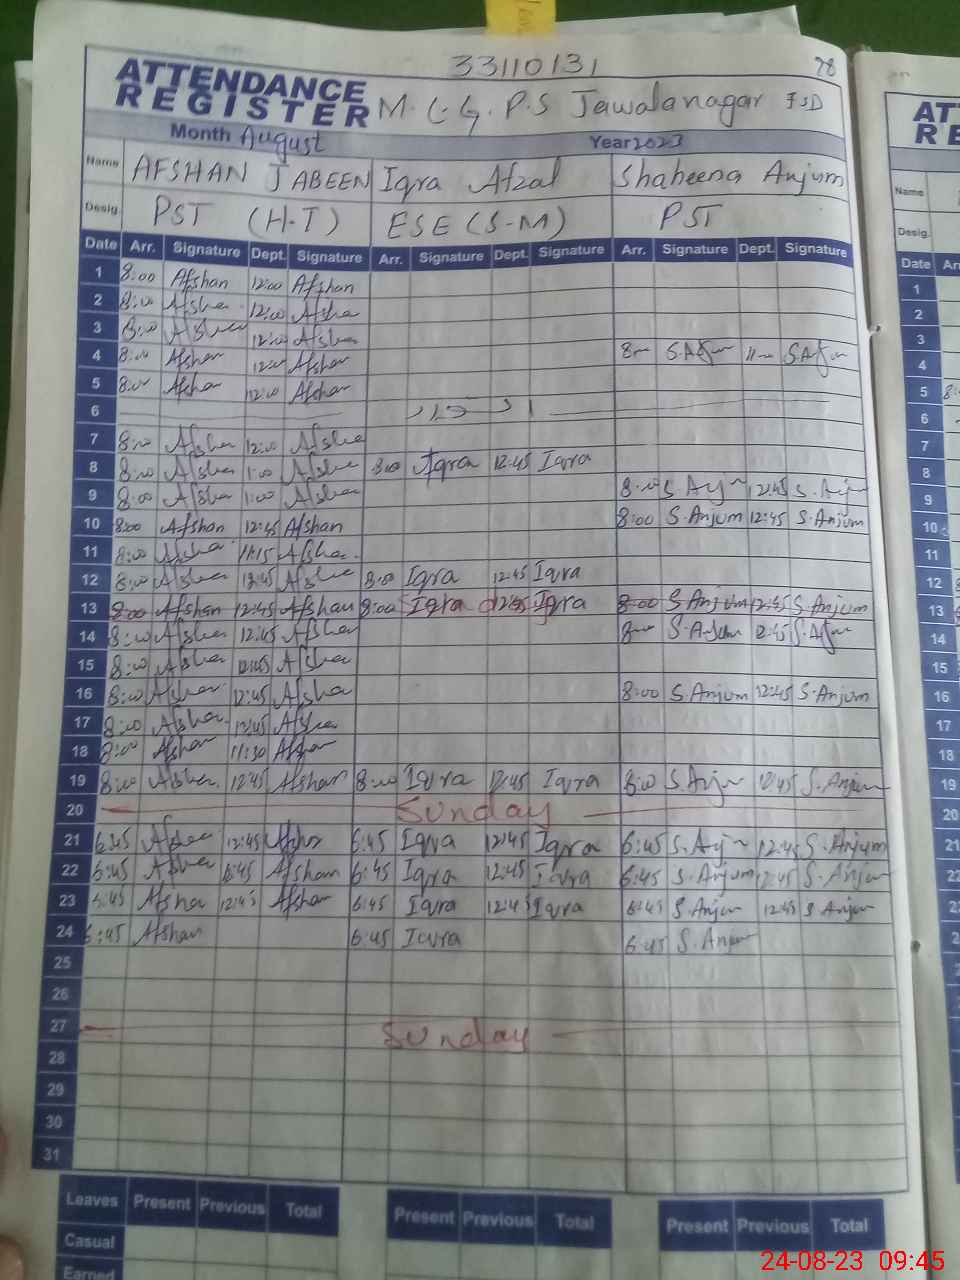 33110131
28
ATTENDANCE
REGISTER M.C.G.P.S Jawalanagar FSD
Month August Year 2023
Name AFSHAN JABEEN Iqra Afzal Shaheena Anjum
Desig. PST (H-T) ESE (S-M) PST
Date Arr. Signature Dept. Signature Arr. Signature Dept. Signature Arr. Signature Dept. Signature
1 8:00 Afshan 12:00 Afshan
2 8:00 Afshan 12:00 Afshan
3 8:00 Afshan 12:00 Afshan
4 8:00 Afshan 12:00 Afshan
5 8:00 Afshan 12:00 Afshan
6
7 8:00 Afshan 12:00 Afshan
8 8:00 Afshan 1:00 Afshan 8:00 Iqra 12:45 Iqra
9 8:00 Afshan 11:00 Afshan 8:00 S.Anjum 12:45 S.Anjum
10 8:00 Afshan 12:45 Afshan 8:00 S.Anjum 12:45 S.Anjum
11 8:00 Afshan 11:15 Afshan
12 8:00 Afshan 12:45 Afshan 8:00 Iqra 12:45 Iqra
13 8:00 Afshan 12:45 Afshan 8:00 Iqra 12:45 Iqra 8:00 S Anjum 12:45 S.Anjum
14 8:00 Afshan 12:45 Afshan S.Anjum 12:45 S.Anjum
15 8:00 Afshan 12:45 Afshan
16 8:00 Afshan 12:45 Afshan 8:00 S.Anjum 12:45 S.Anjum
17 8:00 Afshan 12:45 Afshan
18 8:00 Afshan 11:30 Afshan
19 8:00 Afshan 12:45 Afshan 8:00 Iqra 12:45 Iqra 8:00 S.Anjum 12:45 S.Anjum
20 Sunday
21 6:45 Afshan 12:45 Afshan 6:45 Iqra 12:45 Iqra 6:45 S.Anjum 12:45 S.Anjum
22 6:45 Afshan Afshan 6:45 Iqra 12:45 Iqra 6:45 S.Anjum 12:45 S.Anjum
23 6:45 Afshan 12:45 Afshan 6:45 Iqra 12:45 Iqra 6:45 S.Anjum 12:45 S Anjum
24 6:45 Afshan 6:45 Iqra 6:45 S.Anjum
25
26
27 Sunday
28
29
30
31
Leaves Present Previous Total Present Previous Total Present Previous Total
Casual
Earned
24-08-23 09:45